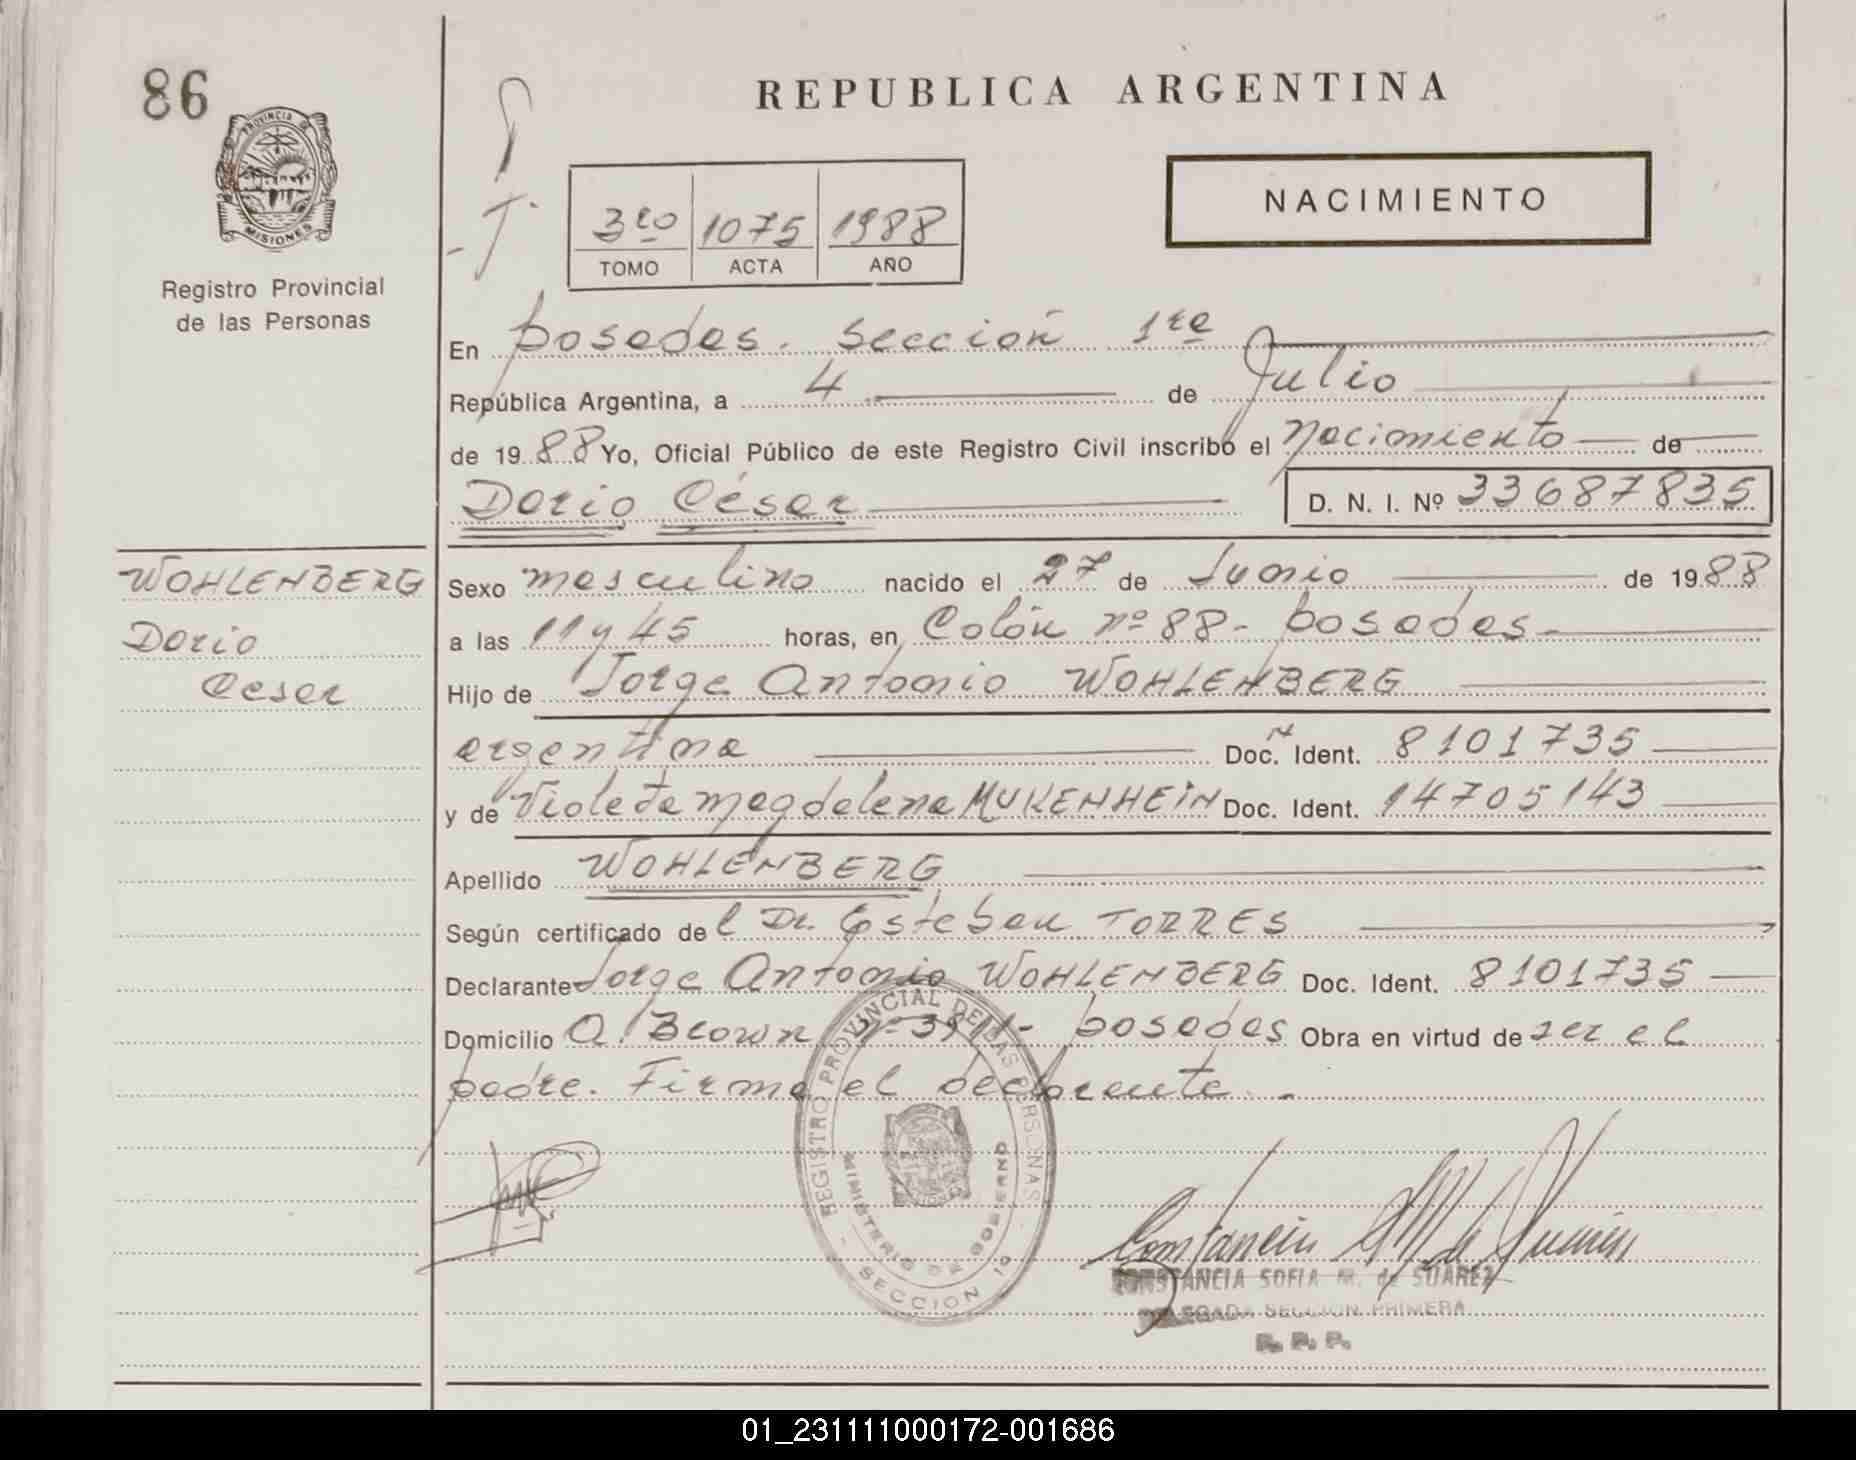 86
PROVINCIA DE
MISIONES
Registro Provincial
de las Personas
REPUBLICA ARGENTINA
NACIMIENTO
3ro 1075 1988
TOMO ACTA AÑO
En Posadas. Sección 1ra
República Argentina, a 4 de Julio
de 1988 Yo, Oficial Público de este Registro Civil inscribo el Nacimiento de
Dario César D. N. I. Nº 33687835
WOHLENBERG
Dario
Cesar
Sexo masculino nacido el 27 de Junio de 1988
a las 11 y 45 horas, en Colón nº 88- Posadas-
Hijo de Jorge Antonio WOHLENBERG
argentina Doc. Ident. 8101735
y de Violeta Magdalena MUKENHEIN Doc. Ident. 14705143
Apellido WOHLENBERG
Según certificado del Dr. Esteban TORRES
Declarante Jorge Antonio WOHLENBERG Doc. Ident. 8101735
Domicilio A. Brown nº Posadas Obra en virtud de ser el
padre. Firma el declarante.
REGISTRO PROVINCIAL DE LAS PERSONAS
MINISTERIO DE GOBIERNO
SECCION 1ª
CONSTANCIA SOFIA M. de SUAREZ
DELEGADA SECCION PRIMERA
R. P. P.
01_231111000172-001686